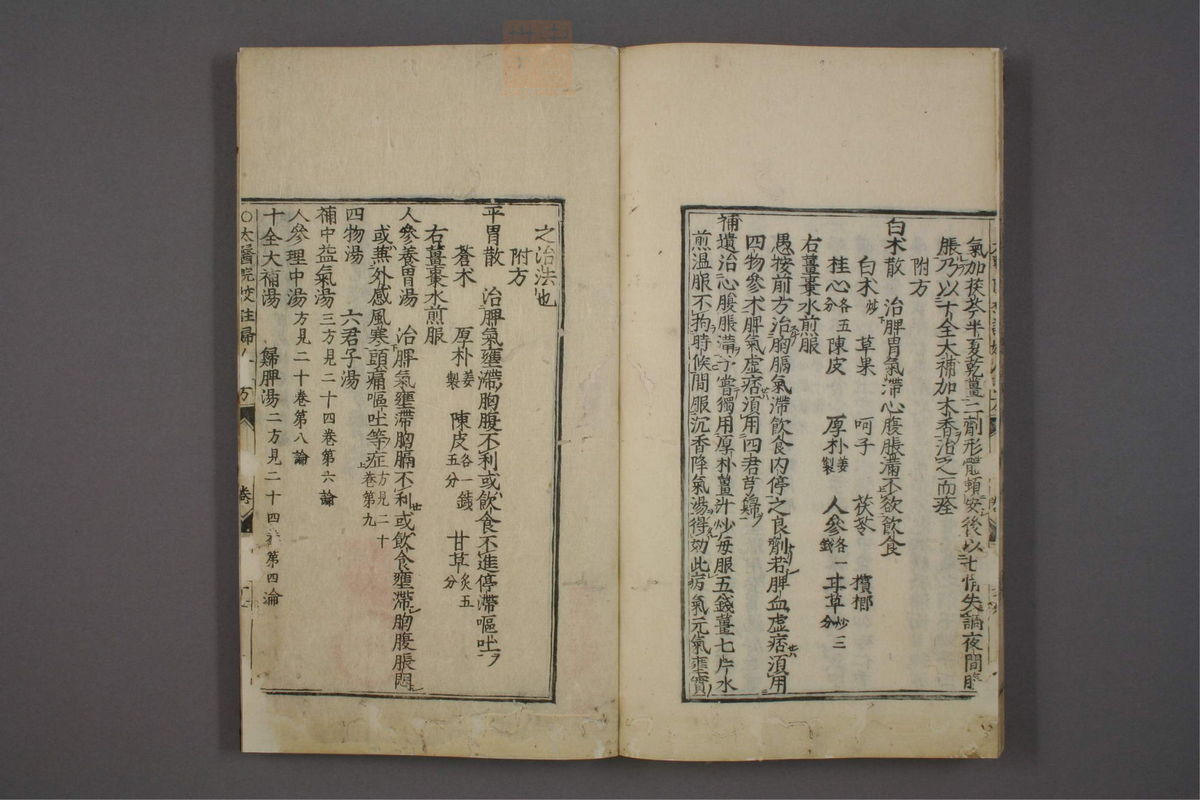 氣加茯苓半夏乾薑二劑形體頓安後以七情失調夜間腹
脹乃以十全大補加木香治之而痊
附方
白朮散 治脾胃氣滯心腹脹滿不欲飲食
白朮炒 草果 呵子 茯苓 檳榔
桂心各五分 陳皮 厚朴姜製 人參各一錢 甘草炒三分
右薑棗水煎服
愚按前方治胸膈氣滯飲食內停之良劑若脾血虛痞須用
四物參朮脾氣虛痞須用四君芎歸
補遺治心腹脹滿予嘗獨用厚朴薑汁炒每服五錢薑七片水
煎溫服不拘時候間服沉香降氣湯得効此病氣元氣壅實
之治法也
附方
平胃散 治脾氣壅滯胸腹不利或飲食不進停滯嘔吐
蒼朮 厚朴姜製 陳皮各一錢五分 甘草炙五分
右薑棗水煎服
人參養胃湯 治脾氣壅滯胸膈不利或飲食壅滯胸腹脹悶
或蕪外感風寒頭痛嘔吐等症方見二十卷第九
四物湯 六君子湯
補中益氣湯三方見二十四卷第六論
人參理中湯方見二十卷第八論
十全大補湯 歸脾湯二方見二十四卷第四論
○太醫院校註婦人 方 卷